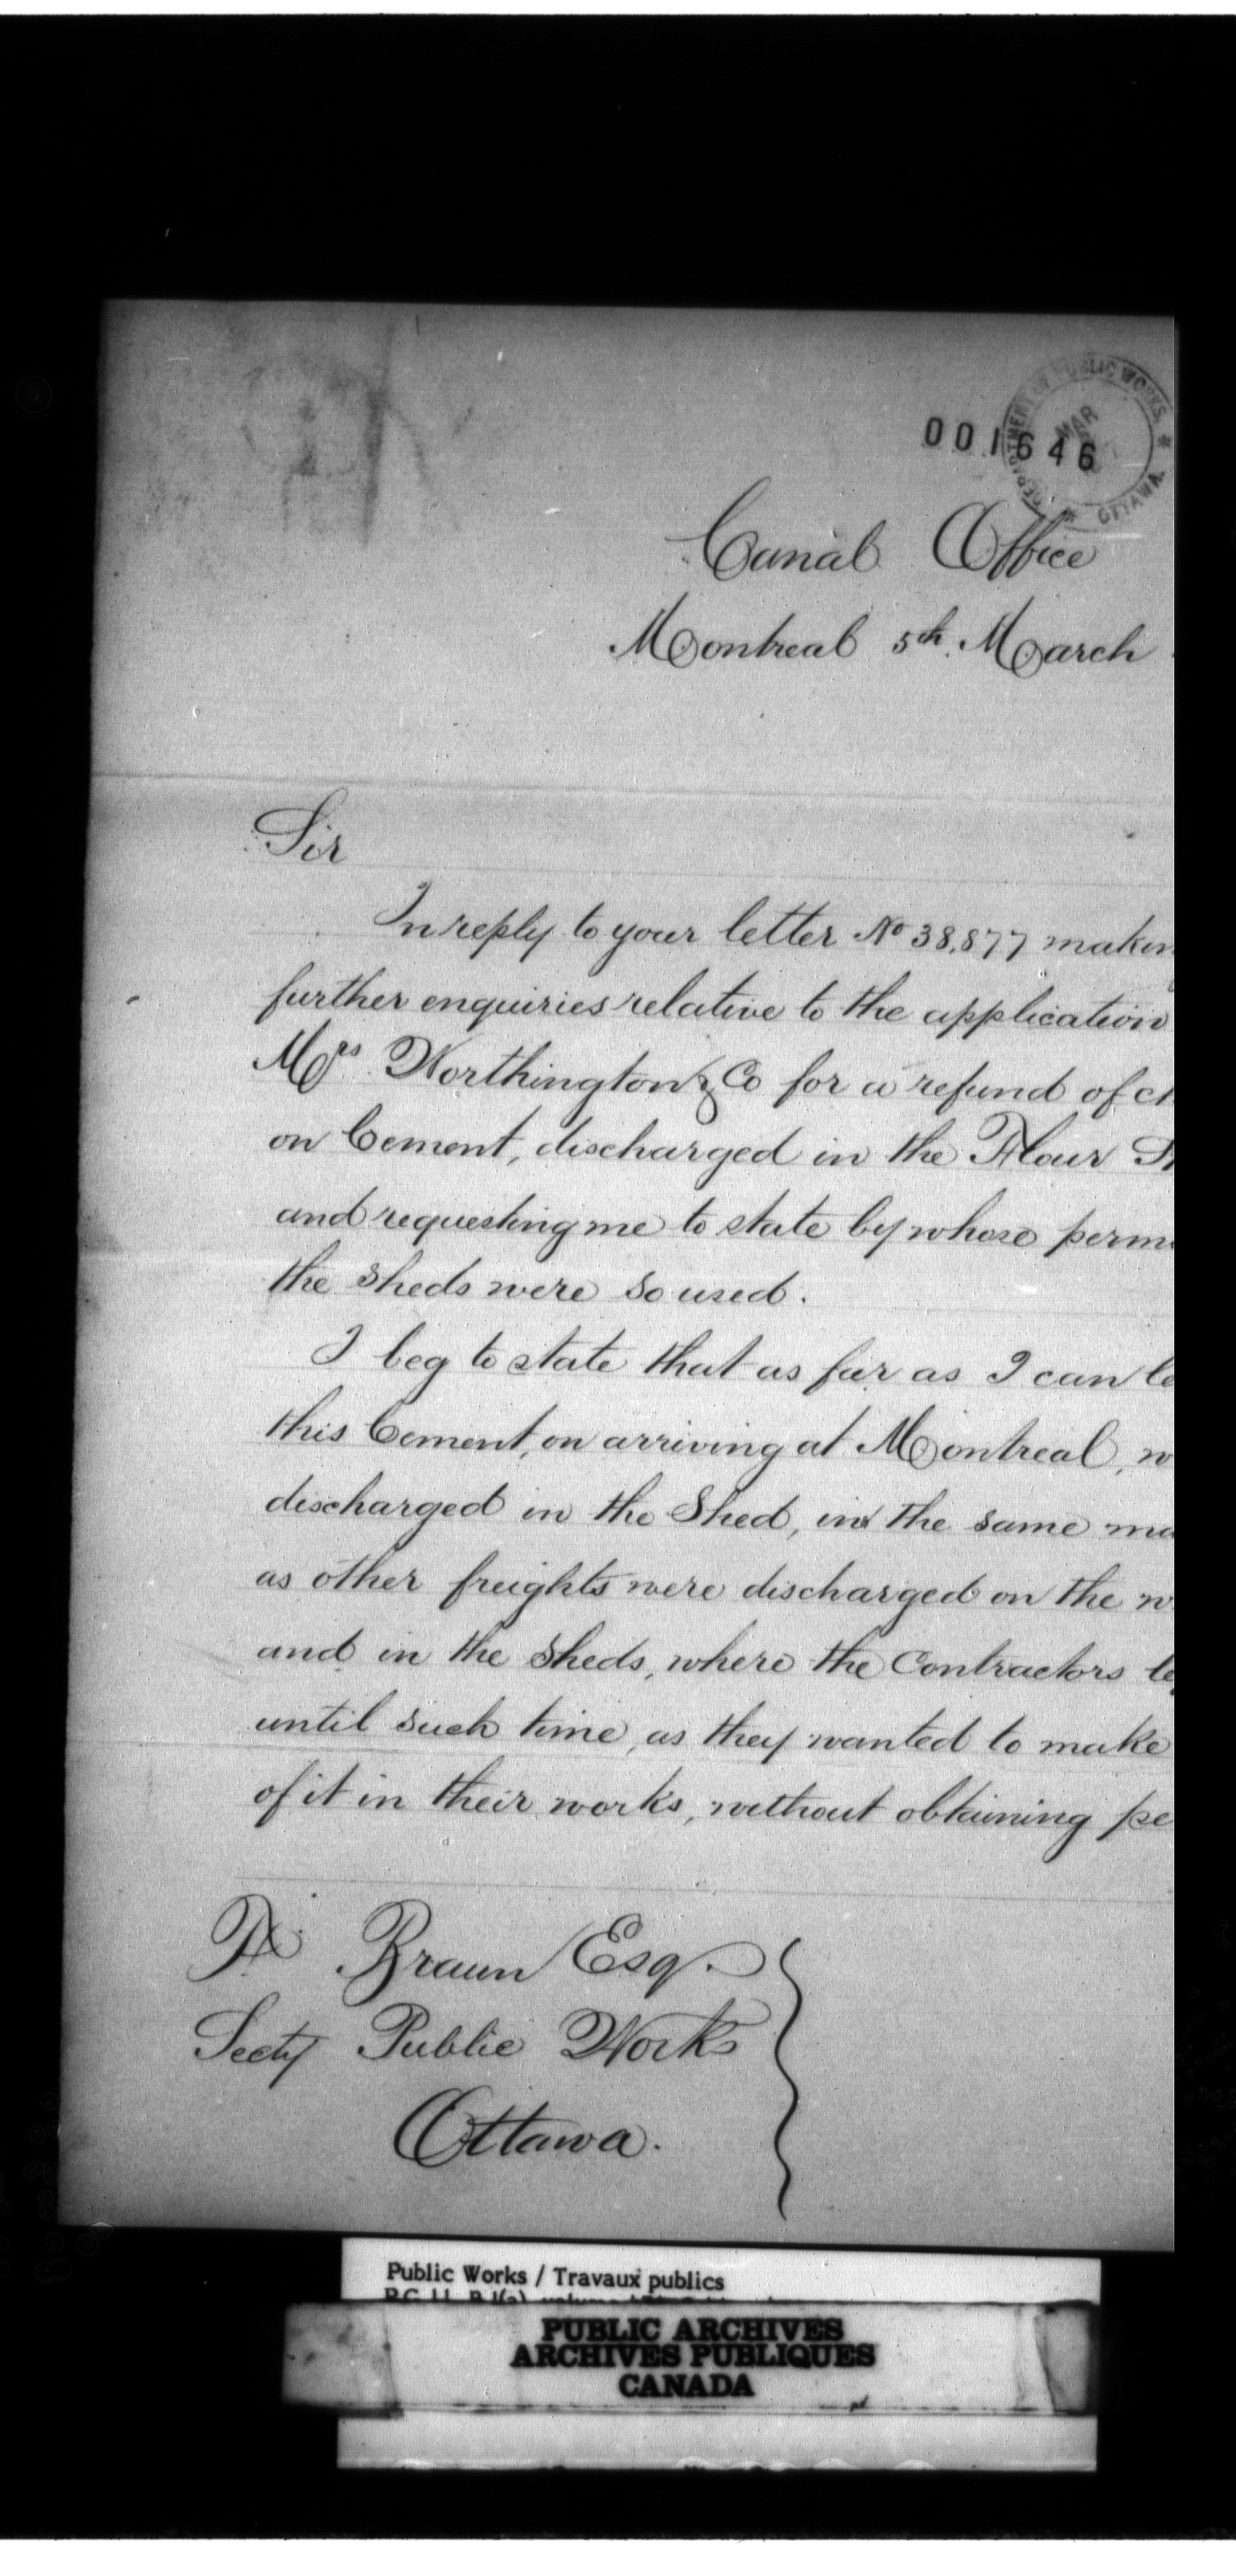 DEPARTMENT OF PUBLIC WORKS. * OTTAWA. *
MAR
001646
Canal Office
Montreal 5th. March
Sir
In reply to your letter No 38,877 makin
further enquiries relative to the application
Mrs. Worthington & Co for a refund of ch
on Cement, discharged in the Flour Sh
and requesting me to state by whose permi
the sheds were so used.
I beg to state that as far as I can le
this Cement, on arriving at Montreal, w
discharged in the Shed, in the same ma
as other freights were discharged on the w
and in the sheds, where the Contractors le
until such time, as they wanted to make
of it in their works, without obtaining pe
F. Braun Esq.
Secty Public Works
Ottawa.
Public Works / Travaux publics
PUBLIC ARCHIVES
ARCHIVES PUBLIQUES
CANADA